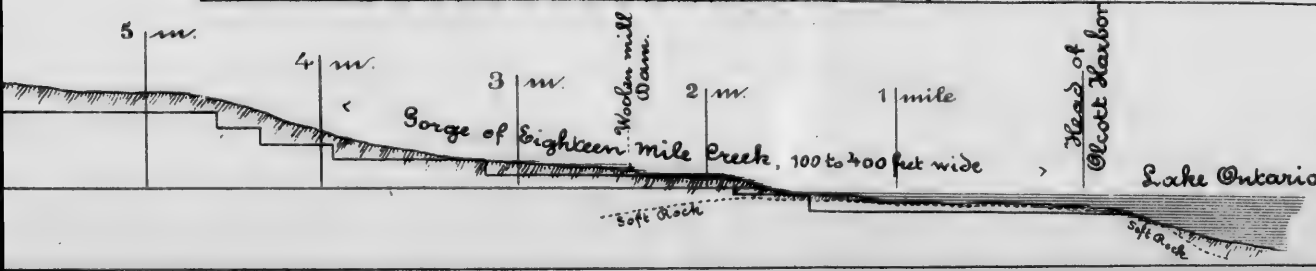 5 m.
4 m.
3 m.
Woolen mill
Dam.
2 m.
1 mile
Head of
Olcott Harbor
Gorge of Eighteen Mile Creek, 100 to 400 feet wide
Lake Ontario
Soft Rock
Soft Rock